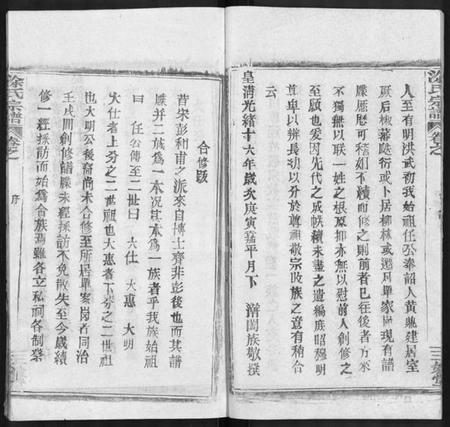 人至有明洪武初我始祖任公奉詔入黃
建居室
厥后椒蕃
衍或卜居柳林或遷居單家岡現有譜
牒歷歷可稽如不續而修之則前者已往後者方來
不獨無以联一姓之根原抑亦無以慰前人創修之
至願也爰因先代之成帙續未盡之遺編庶昭穆明
尊卑以辨長幼以分於尊祖敬宗收族之意有稍合
云
皇清光緒十六年歲次庚寅孟平月下 濳闔族敬撰
涂氏宗譜
卷之
合修跋
昔宋彭利甫之派來自博士齊非彭後也而其譜
牒并二族為一本况其本為一族者乎我族始祖
曰 任公傳至二世曰 大仕 大惠 大明
大仕者上分之二世祖也大惠者下分之二世祖
也大明公後裔尚未合修至所居單家崗者同治
壬戌間創修譜牒未經採訪不免散失至今歲續
修一經採訪而始為合族焉雖各立私祠各制祭
涂氏宗譜
卷之
序